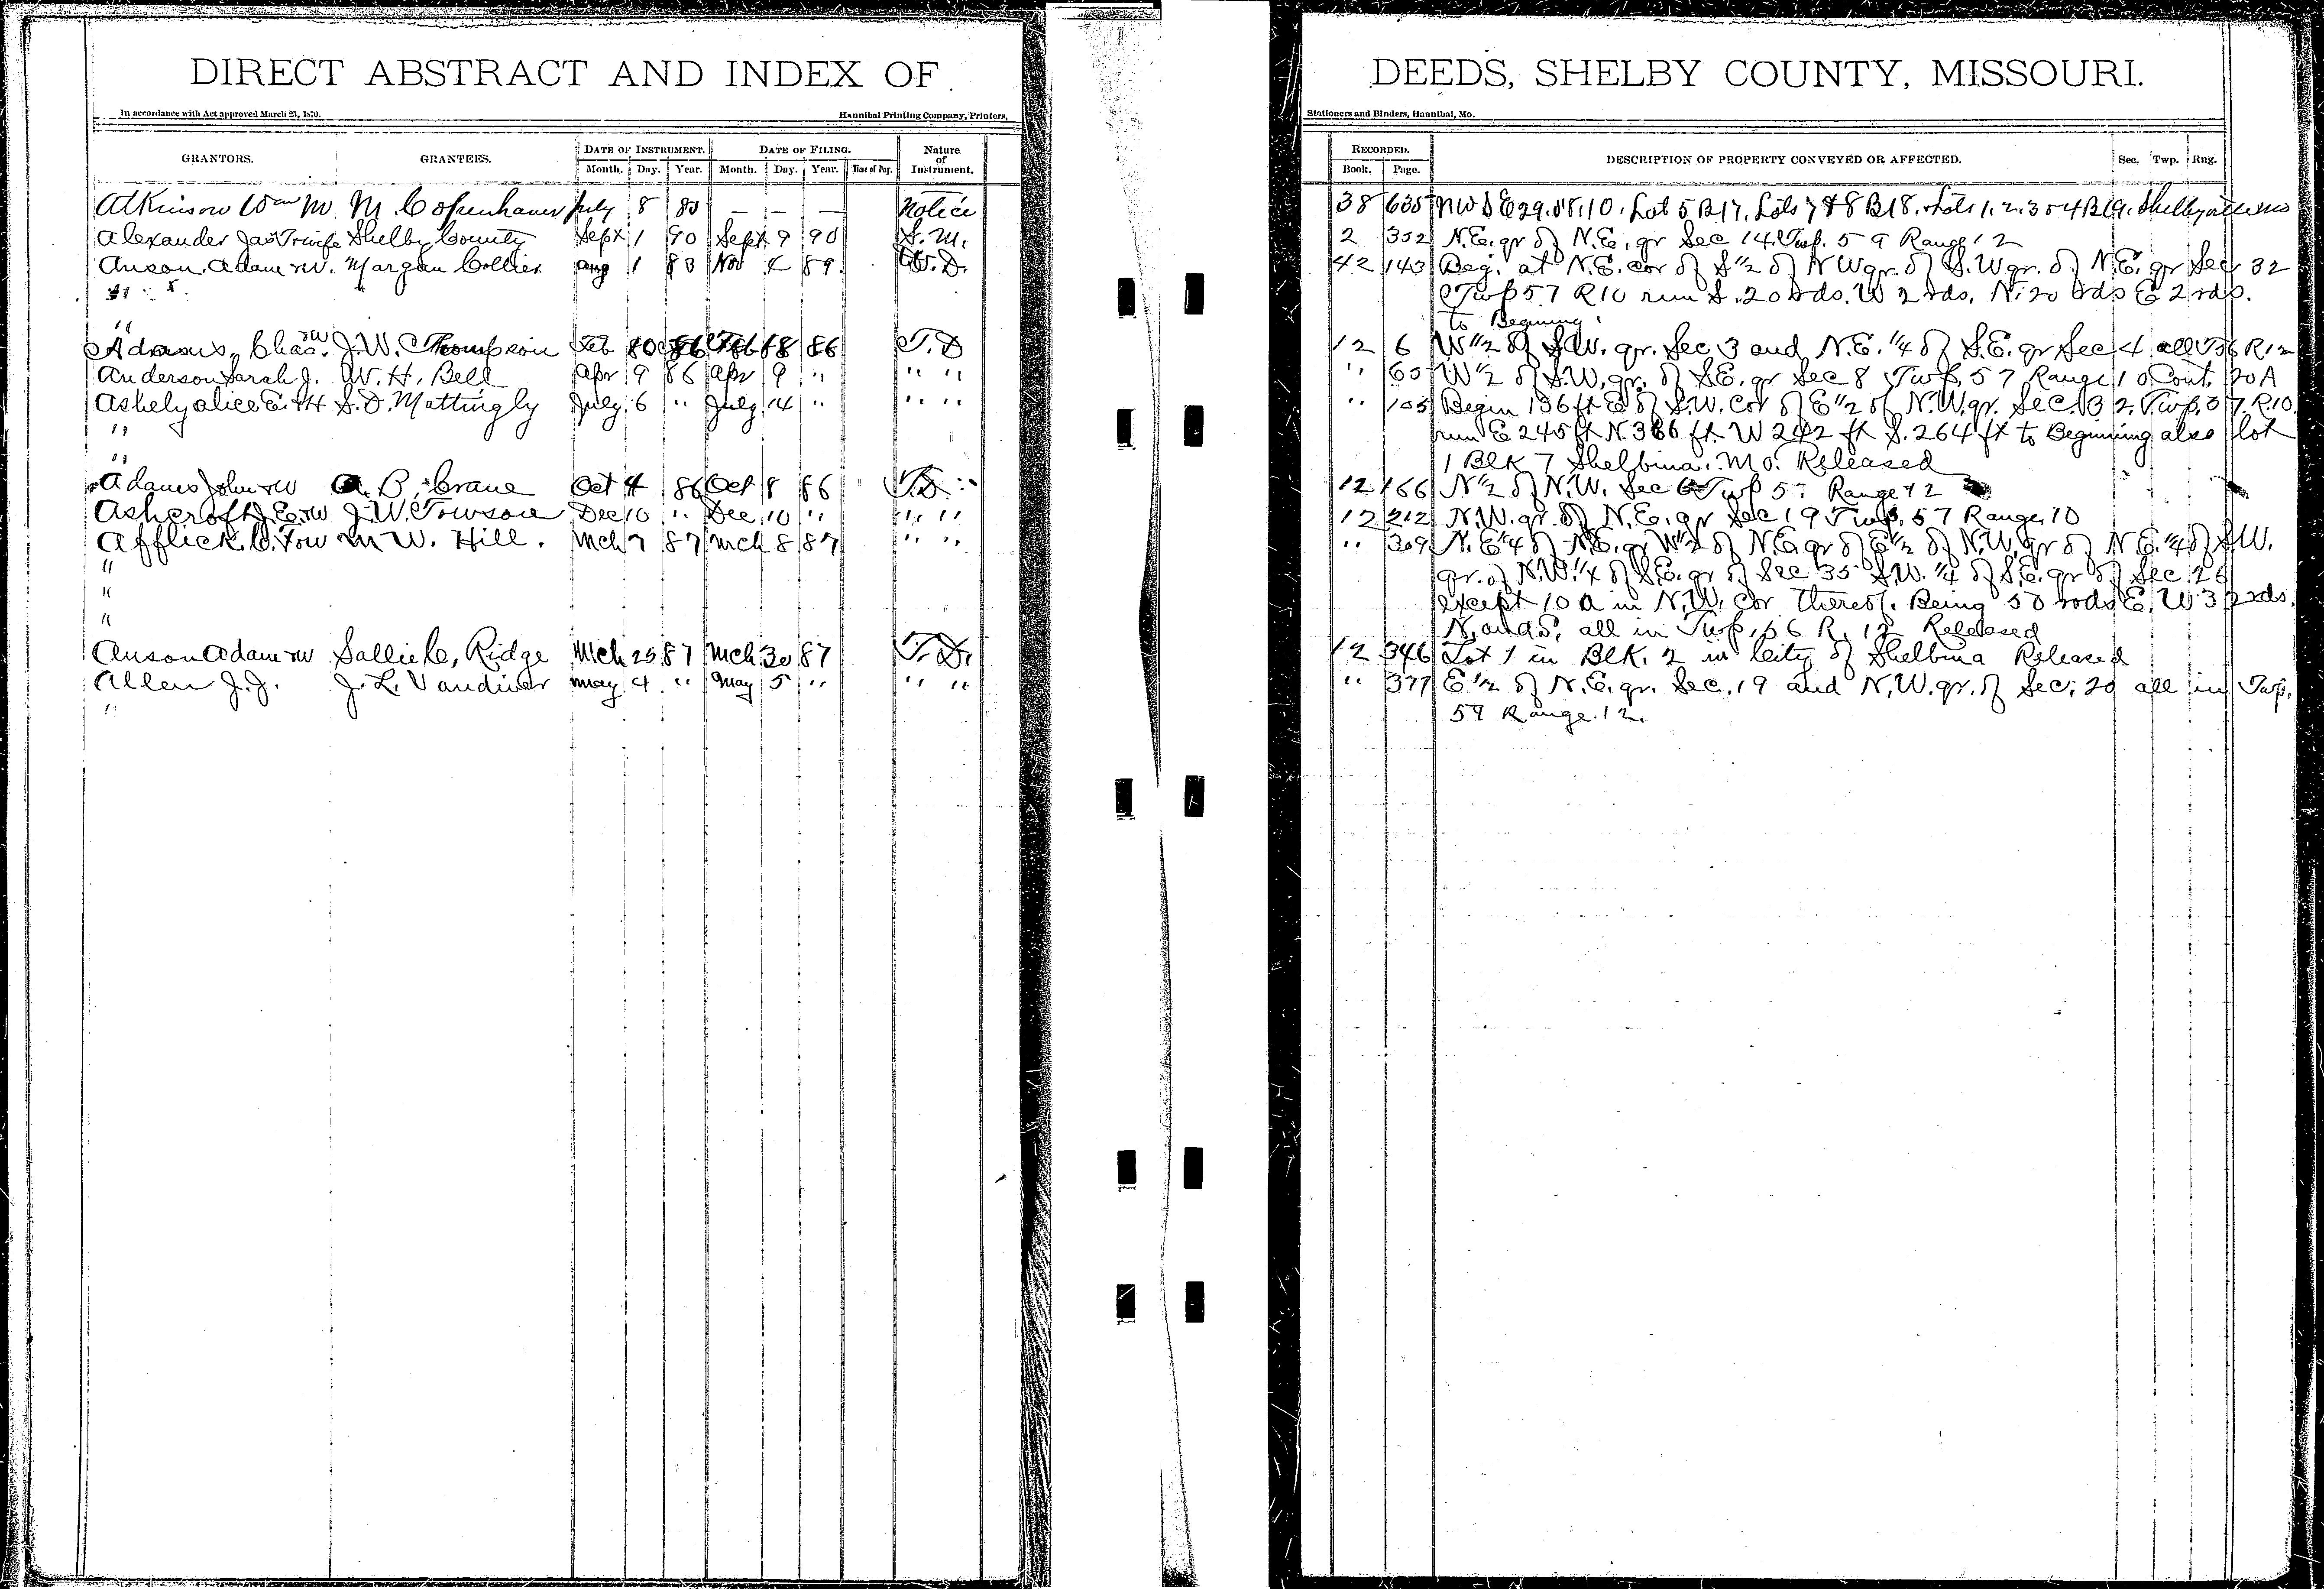 DIRECT ABSTRACT AND INDEX OF
In accordance with Act approved March 25, 1870.
Hannibal Printing Company, Printers,
GRANTORS. GRANTEES. DATE OF INSTRUMENT. DATE OF FILING. Nature of Instrument.
Month. Day. Year. Month. Day. Year. Time of Day.
Atkinson Wm M M. Copenhaver July 8 80 — — — Notice
Alexander Jas T wife Shelby County Sept 1 90 Sept 9 90 S. M.
Anson, Adam &W. Morgan Collier Aug 1 83 Nov 4 89 W. D.
" "
"
Adams, Chas. &W J. W. Thompson Feb 86 Feb 18 86 T. D
Anderson Sarah J. W. H. Bell Apr 9 86 Apr 9 " " "
Ashely Alice E. &H S. D. Mattingly July 6 " July 14 " " "
"
"
Adams John &W A. B. Crane Oct 4 86 Oct 8 86 T. D.
Ashcroft J. E. &W J. W. Towson Dec 10 " Dec. 10 " " "
Afflick M. W. Hill. Mch 7 87 Mch 8 87 " "
"
"
"
Anson Adam &W Sallie C. Ridge Mch 25 87 Mch 30 87 T. D.
Allen J. J. J. L. Vandiver May 4 " May 5 " " "
"
DEEDS, SHELBY COUNTY, MISSOURI.
Stationers and Binders, Hannibal, Mo.
RECORDED. DESCRIPTION OF PROPERTY CONVEYED OR AFFECTED. Sec. Twp. Rng.
Book. Page.
38 635 NW S E 29. 58. 10. Lot 5 B 17. Lots 7 & 8 B 18. Lots 1. 2. 3 & 4 B 19.
2 352 N. E. qr of N. E. qr Sec 14 Twp. 59 Range 12
42 143 Beg. at N. E. cor of S 1/2 of N W qr. of S. W qr. of N. E. qr Sec 32
Twp 57 R 10 run S. 20 rds. W 2 rds. N. 20 rds E 2 rds.
to Begining.
12 6 W 1/2 of S W. qr. Sec 3 and N. E. 1/4 of S. E. qr Sec 4 all T 56 R 12
" 65 W 1/2 of S. W. qr. of S. E. qr Sec 8 Twp. 57 Range 10 Cont. 20 A
" 105 Begin 136 ft E of S. W. cor of E 1/2 of N. W. qr. Sec. 32. Twp. 57. R. 10.
run E 245 ft N. 366 ft. W 242 ft S. 264 ft to Beginning also lot
1 Blk 7 Shelbina. Mo. Released
12 166 N 1/2 of N. W. Sec 6 Twp 57 Range 12
12 212 N. W. qr. of N. E. qr Sec 19 Twp. 57 Range. 10
" 309 N. E 1/4 of N. E. qr W 1/2 of N. E. qr of E 1/2 of N. W. qr of N E. 1/4 of S W.
qr. of N. W. 1/4 of S. E. qr of Sec 35 S. W. 1/4 of S. E. qr of Sec 26
except 10 A in N. W. cor thereof. Being 50 rods E. W 32 rds.
N. and S, all in Twp. 56 R. 12 Released
12 346 Lot 1 in Blk. 2 in City of Shelbina Released
" 377 E 1/2 of N. E. qr. Sec. 19 and N. W. qr. of Sec; 20 all in Twp.
59 Range. 12.